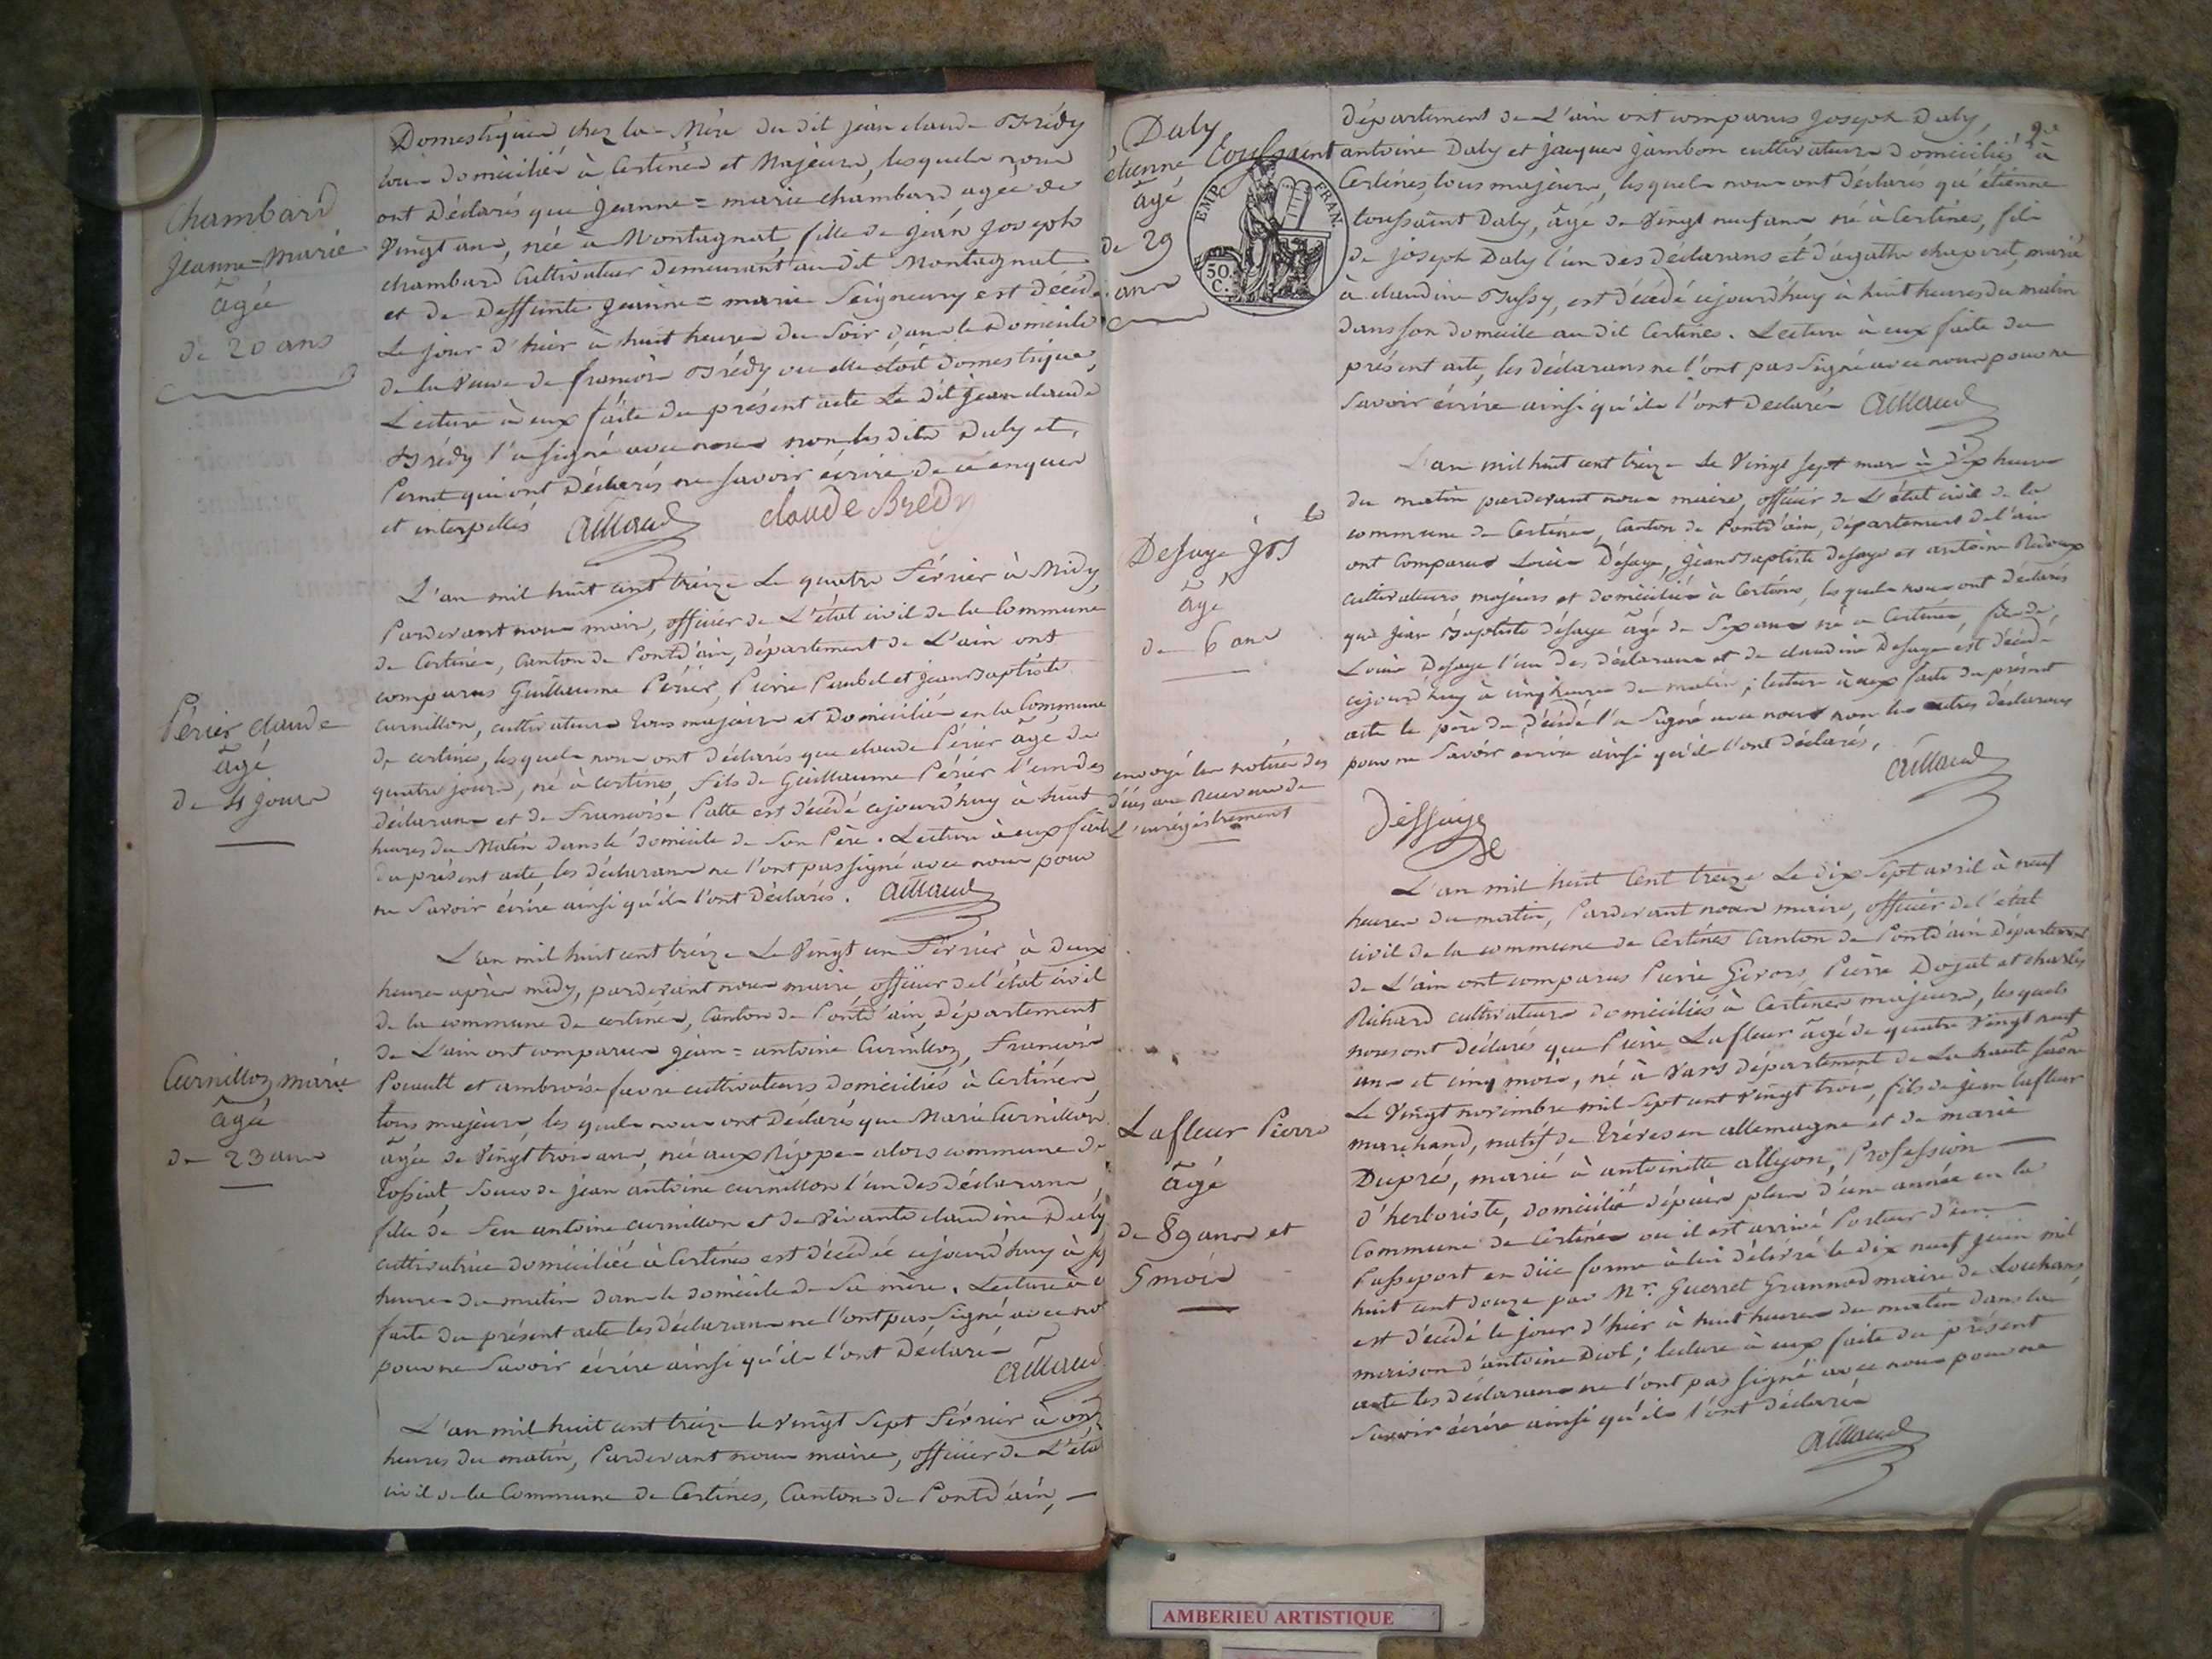 Domestique chez la Mère du dit jean claude Brédy
tous domiciliés à Certines et Majeurs, lesquels nous
ont Déclarés que Jeanne = marie chambard agée de
Vingt ans, née à Montagnat, fille de jean Joseph
chambard Cultivateur demeurant au dit Montagnat
et de Deffunte jeanne = marie Seigneury est décédé
Le jour d'hier à huit heures du soir dans le Domicile
de la veuve de françois Brédy ou elle étoit domestique,
Lecture à eux faite du présent acte Le dit jean claude
Brédy l'a signé avec nous non les dits Daly et
Pernet qui ont Déclarés ne savoir écrire de ce enquis
et interpellés Aillaud claude Bredy
Chambard
Jeanne=Marie
âgée
de 20 ans
L'an mil huit cent treize Le quatre Février à Midy,
Pardevant nous maire, officier de L'état civil de la Commune
de Certines, Canton de Pontd'ain, département de L'ain ont
comparus Guillaume Périer, Pierre Paubel et jean Baptiste
Curnillon, cultivateurs tous majeurs et Domiciliés en la Commune
de certines, lesquels nous ont déclarés que claude Périer âgé de
quatre jours, né à certines, fils de Guillaume Périer l'un des
déclarans et de Françoise Patte est décédé cejourd'huy à huit
heures du Matin dans le domicile de son Père. Lecture à eux faite
du présent acte, les déclarans ne l'ont pas signé avec nous pour
ne Savoir écrire ainsi qu'ils l'ont Déclarés. Aillaud
Périer claude
âgé
de 4 jours
L'an mil huit cent treize Le Vingt un Février à deux
heures après midy, pardevant nous maire, officier de l'état civil
de la commune de certines, Canton de Pontd'ain, Département
de L'ain ont comparus jean = antoine Curnillon, François
Pocault et ambroise favre cultivateurs domiciliés à Certines
tous majeurs, lesquels nous ont Déclarés que Marie Curnillon
âgée de Vingt trois ans, née aux Rippes alors commune de
Tossiat, Soeur de jean antoine curnillon l'un des déclarans,
fille de feu antoine curnillon et de vivante claudine Daly
cultivatrice domiciliée à Certines est décédée cejourd'huy à
heures du matin dans le domicile de sa mère. Lecture à
faite du présent acte les déclarans ne l'ont pas signé avec no
pour ne Savoir écrire ainsi qu'ils l'ont Déclaré Aillaud
Curnillon, marie
âgée
de 23 ans
L'an mil huit cent treize le vingt sept Février à onz
heures du matin, Pardevant nous maire, officier de L'éta
civil de la Commune de Certines, Canton de Pontd'ain,
Daly
étienne toussaint
âgé
de 29
ans
EMP. FRAN.
50.
C.
département de L'ain ont comparus Joseph Daly,
antoine Daly et jacques jambon cultivateurs domiciliés à
Certines, tous majeurs, lesquels nous ont déclarés qu'étienne
toussaint Daly, âgé de Vingt neuf ans né à Certines, fils
de joseph Daly l'un des déclarans et d'agathe marié
à claudine Bussy, est décédé cejourd'huy à huit heures du matin
dans son domicile au dit Certines. Lecture à eux faite du
présent acte, les déclarans ne l'ont pas signé avec nous pour ne
savoir écrire ainsi qu'ils l'ont déclarés Aillaud
L'an mil huit cent treize Le Vingt sept mars à dix heures
du matin pardevant nous maire, officier de L'état civil de la
commune de Certines, Canton de Pontd'ain, département de l'ain
ont comparus Louis Desaye, jean Baptiste Desaye et antoine
cultivateurs majeurs et domiciliés à Certines, lesquels nous ont déclarés
que jean Baptiste désaye âgé de Six ans né à Certines, fils de
Louis Desaye l'un des déclarans et de claudine Desaye est décédé
cejourd'huy à cinq heures du matin ; lecture à eux faite du présent
acte le père du décédé l'a signé avec nous non les autres déclarans
pour ne savoir ecrire ainsi qu'ils l'ont déclarés,
Aillaud
Dessaye
Desaye
âgé
de 6 ans
envoyé les notices des
décès au Receveur de
L'enrégistrement
L'an mil huit Cent treize Le dix sept avril à neuf
heures du matin, Pardevant nous maire, officier de l'état
civil de la commune de Certines Canton de Pontd'ain Département
de L'ain ont comparus Pierre Piérre et charles
Richard cultivateurs domiciliés à Certines majeurs, lesquels
nous ont déclarés que Pierre Lafleur âgé de quatre Vingt neuf
ans et cinq mois, né à Vars département de La haute saône
Le Vingt novembre mil Sept cent vingt trois, fils de jean lafleur
marchand, natif de Tréves en allemagne et de marie
Dupré, marié à antoinette allyon, Profession
d'herboriste, domicilié dépuis plus d'une année en la
Commune de Certines ou il est arrivé Porteur d'un
Passeport en due forme à lui délivré le dix neuf juin mil
huit cent douze par Mr. Guerret Grannod maire de Louhans,
est décédé le jour d'hier à huit heures du matin dans la
maison d'antoine ; lecture à eux faite du présent
acte les déclarans ne l'ont pas signé avec nous pour ne
savoir écrire ainsi qu'ils l'ont déclarés
Aillaud
Lafleur Pierre
âgé
de 89 ans et
5 mois
AMBERIEU ARTISTIQUE